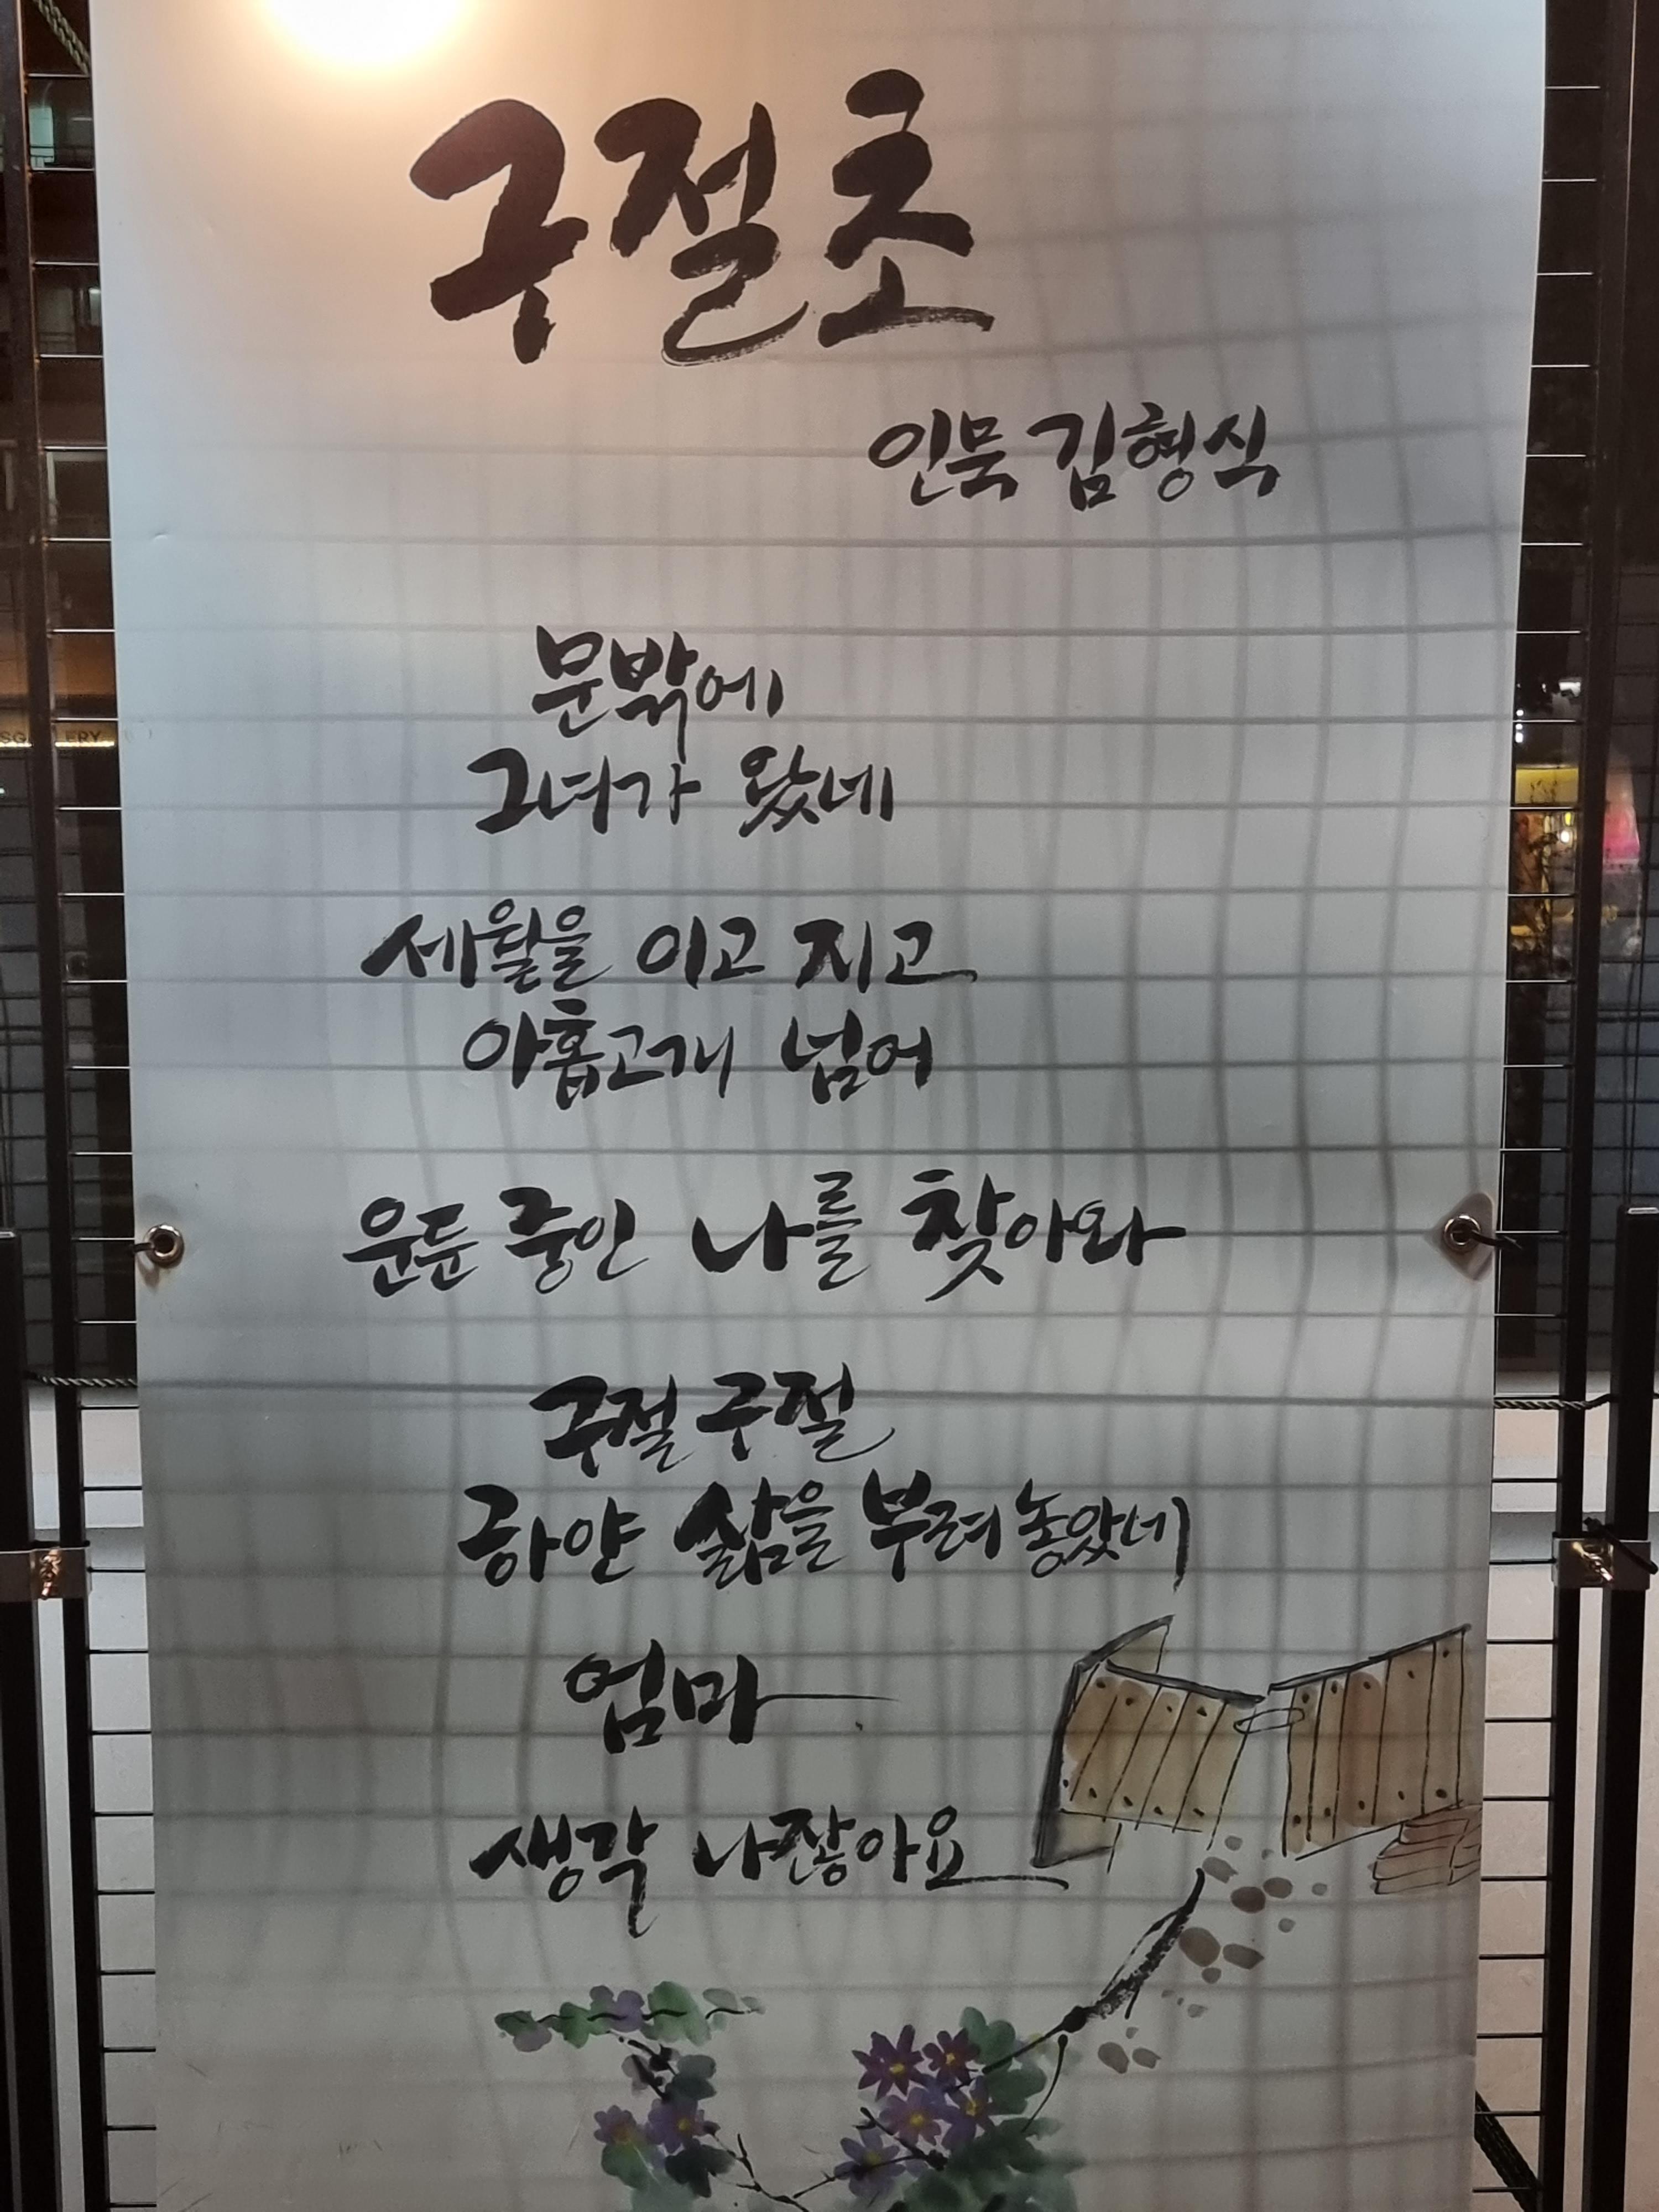 구절초
인묵 김형식
문밖에
그녀가 왔네
세월을 이고 지고
아홉고개 넘어
은둔 중인 나를 찾아와
구절 구절
하얀 삶을 부려 놓았네
엄마
생각 나잖아요